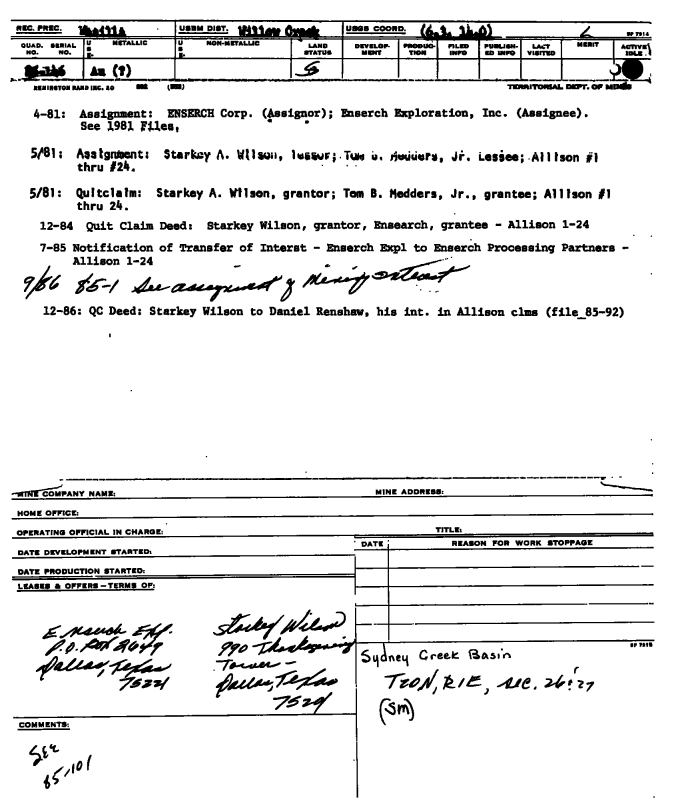 REC. PREC. Wasilla USBM DIST. Willow Creek USGS COORD. (6.3, 14.0) SP 7914
QUAD. NO. SERIAL NO. USE- METALLIC USE- NON-METALLIC LAND STATUS DEVELOP-MENT PRODUC-TION FILED INFO PUBLISH-ED INFO LAST VISITED MERIT ACTIVE IDLE
Au (?)
REMINGTON RAND INC. TERRITORIAL DEPT. OF MINES
4-81: Assignment: ENSERCH Corp. (Assignor); Enserch Exploration, Inc. (Assignee).
See 1981 Files,
5/81: Assignment: Starkey A. Wilson, lessor; Tom B. Medders, Jr. Lessee; Allison #1
thru #24.
5/81: Quitclaim: Starkey A. Wilson, grantor; Tom B. Medders, Jr., grantee; Allison #1
thru 24.
12-84 Quit Claim Deed: Starkey Wilson, grantor, Ensearch, grantee - Allison 1-24
7-85 Notification of Transfer of Interst - Enserch Expl to Enserch Processing Partners -
Allison 1-24
9/86 85-1 See assignment of Mining interest
12-86: QC Deed: Starkey Wilson to Daniel Renshaw, his int. in Allison clms (file 85-92)
MINE COMPANY NAME: MINE ADDRESS:
HOME OFFICE:
OPERATING OFFICIAL IN CHARGE: TITLE:
DATE DEVELOPMENT STARTED:
DATE REASON FOR WORK STOPPAGE
DATE PRODUCTION STARTED:
LEASES & OFFERS - TERMS OF:
Enserch Exp.
P.O. Box 2649
Dallas, Texas
75221
Starkey Wilson
990 Thanksgiving
Tower -
Dallas, Texas
7520
SP 7915
Sydney Creek Basin
T20N, R1E, sec. 26 & 27
(SM)
COMMENTS:
See
85-101